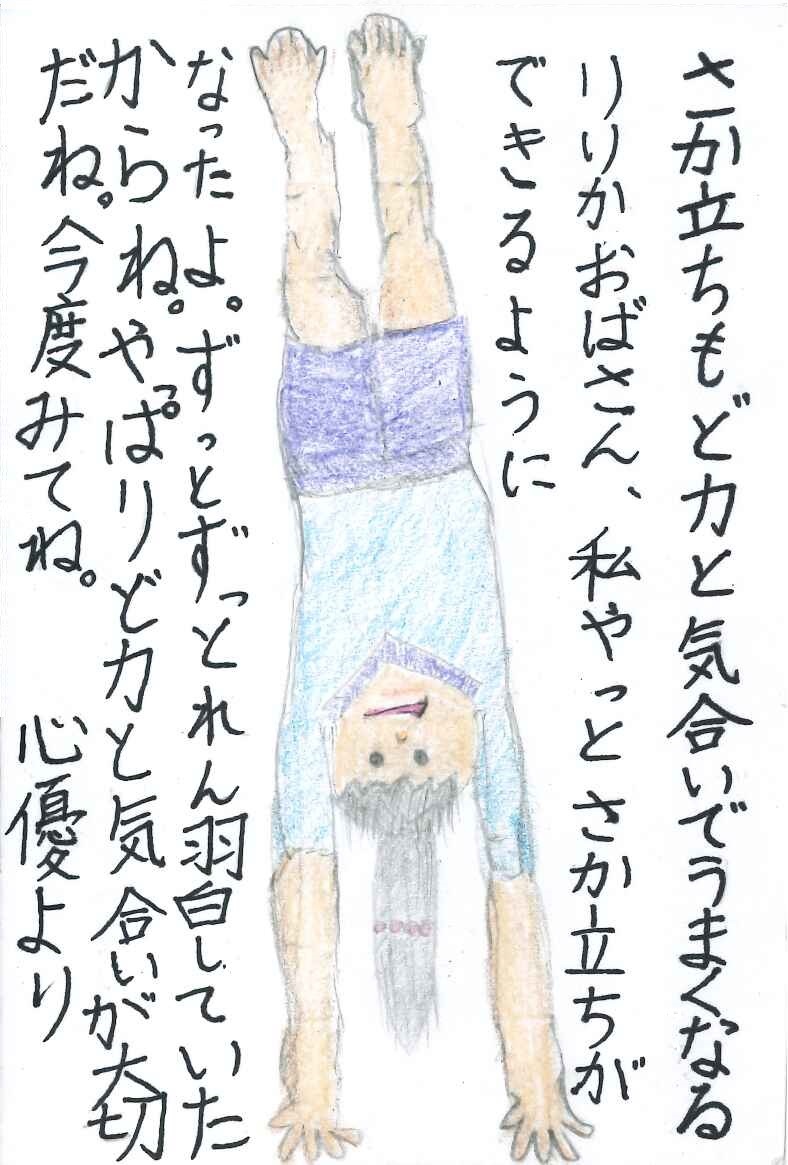 さか立ちもど力と気合いでうまくなる
りりかおばさん、私やっとさか立ちが
できるように
なったよ。ずっとずっとれん習していた
からね。やっぱりど力と気合いが大切
だね。今度みてね。
心優より